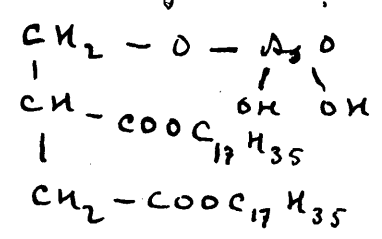 CH₂ – O – As O
OH OH
CH – COOC₁₇H₃₅
CH₂ – COOC₁₇H₃₅